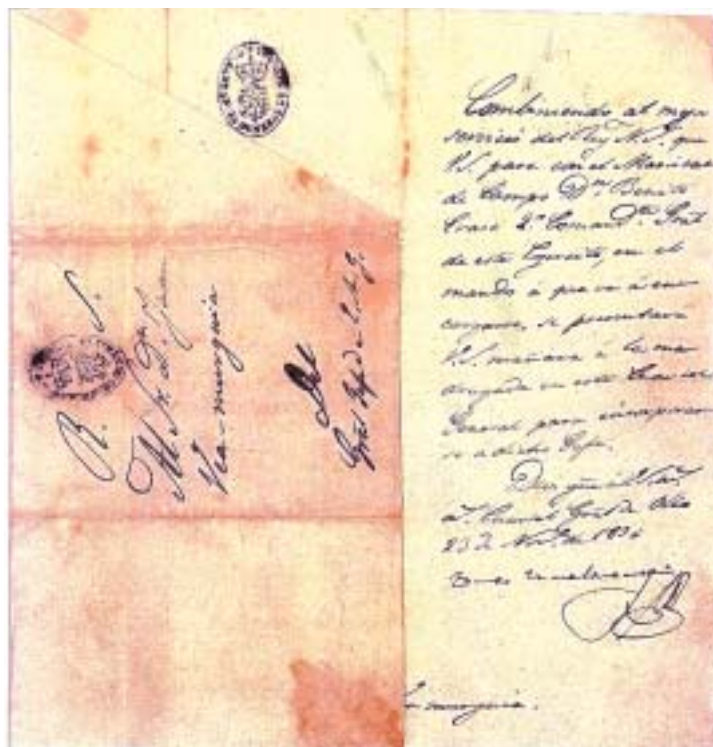 R. S.
Al Sr. Dn. Juan
Vea-murguia
Del
Gral Gefe de E. M. G.
Combiniendo al mejor
servicio del Rey N. S. que
V.S. pase con el Mariscal
de Campo Dn. Benito
Eraso 2º Comandte. Gral
de este Egercito, en el
mando á que va á en
cargarse, se presentará
V.S. mañana á la ma
drugada en este Cuartel
General para incorporar
se a dicho Gefe.
Dios gue á V.S. ms.
as. Cuartel Gral de
23 de Novre. de 183
murguia.